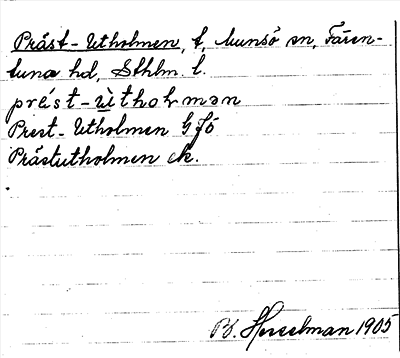 Präst-Utholmen, t, Munsö sn, Fären-
tuna hd, Sthlm. l.
prést-ùtholmən
Prest-Utholmen GJö
Prästutholmen ck.
B. Hesselman 1905